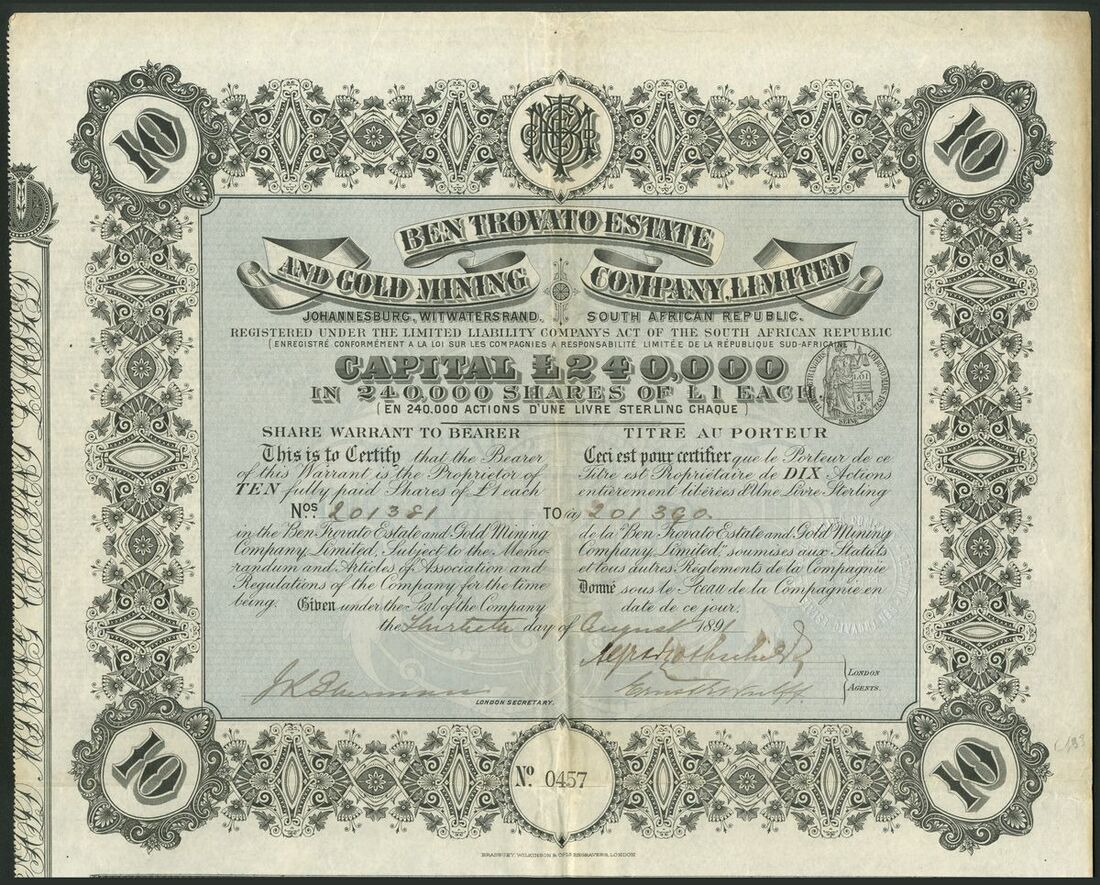 10
10
BEN TROVATO ESTATE
AND GOLD MINING COMPANY, LIMITED
JOHANNESBURG, WITWATERSRAND. SOUTH AFRICAN REPUBLIC.
REGISTERED UNDER THE LIMITED LIABILITY COMPANYS ACT OF THE SOUTH AFRICAN REPUBLIC
(ENREGISTRÉ CONFORMÉMENT A LA LOI SUR LES COMPAGNIES A RESPONSABILITÉ LIMITÉE DE LA RÉPUBLIQUE SUD-AFRICAINE)
CAPITAL £240,000
IN 240,000 SHARES OF £1 EACH.
(EN 240.000 ACTIONS D'UNE LIVRE STERLING CHAQUE)
SEINE
SHARE WARRANT TO BEARER
This is to Certify that the Bearer
of this Warrant is the Proprietor of
TEN fully paid Shares of £1 each
Nos. 201381
in the Ben Trovato Estate and Gold Mining
Company, Limited, Subject to the Memo-
randum and Articles of Association and
Regulations of the Company for the time
being. Given under the Seal of the Company
TITRE AU PORTEUR
Ceci est pour certifier que le Porteur de ce
Titre est Propriétaire de DIX Actions
entièrement libérées d'Une Livre Sterling
TO (à) 201390
de la "Ben Trovato Estate and Gold Mining
Company, Limited" soumises aux Statuts
et tous autres Réglements de la Compagnie
Donné sous le Sceau de la Compagnie en
date de ce jour.
the Thirtieth day of August 1891
LONDON AGENTS.
LONDON SECRETARY.
10
No. 0457
10
BRADBURY, WILKINSON & Co. LD ENGRAVERS, LONDON